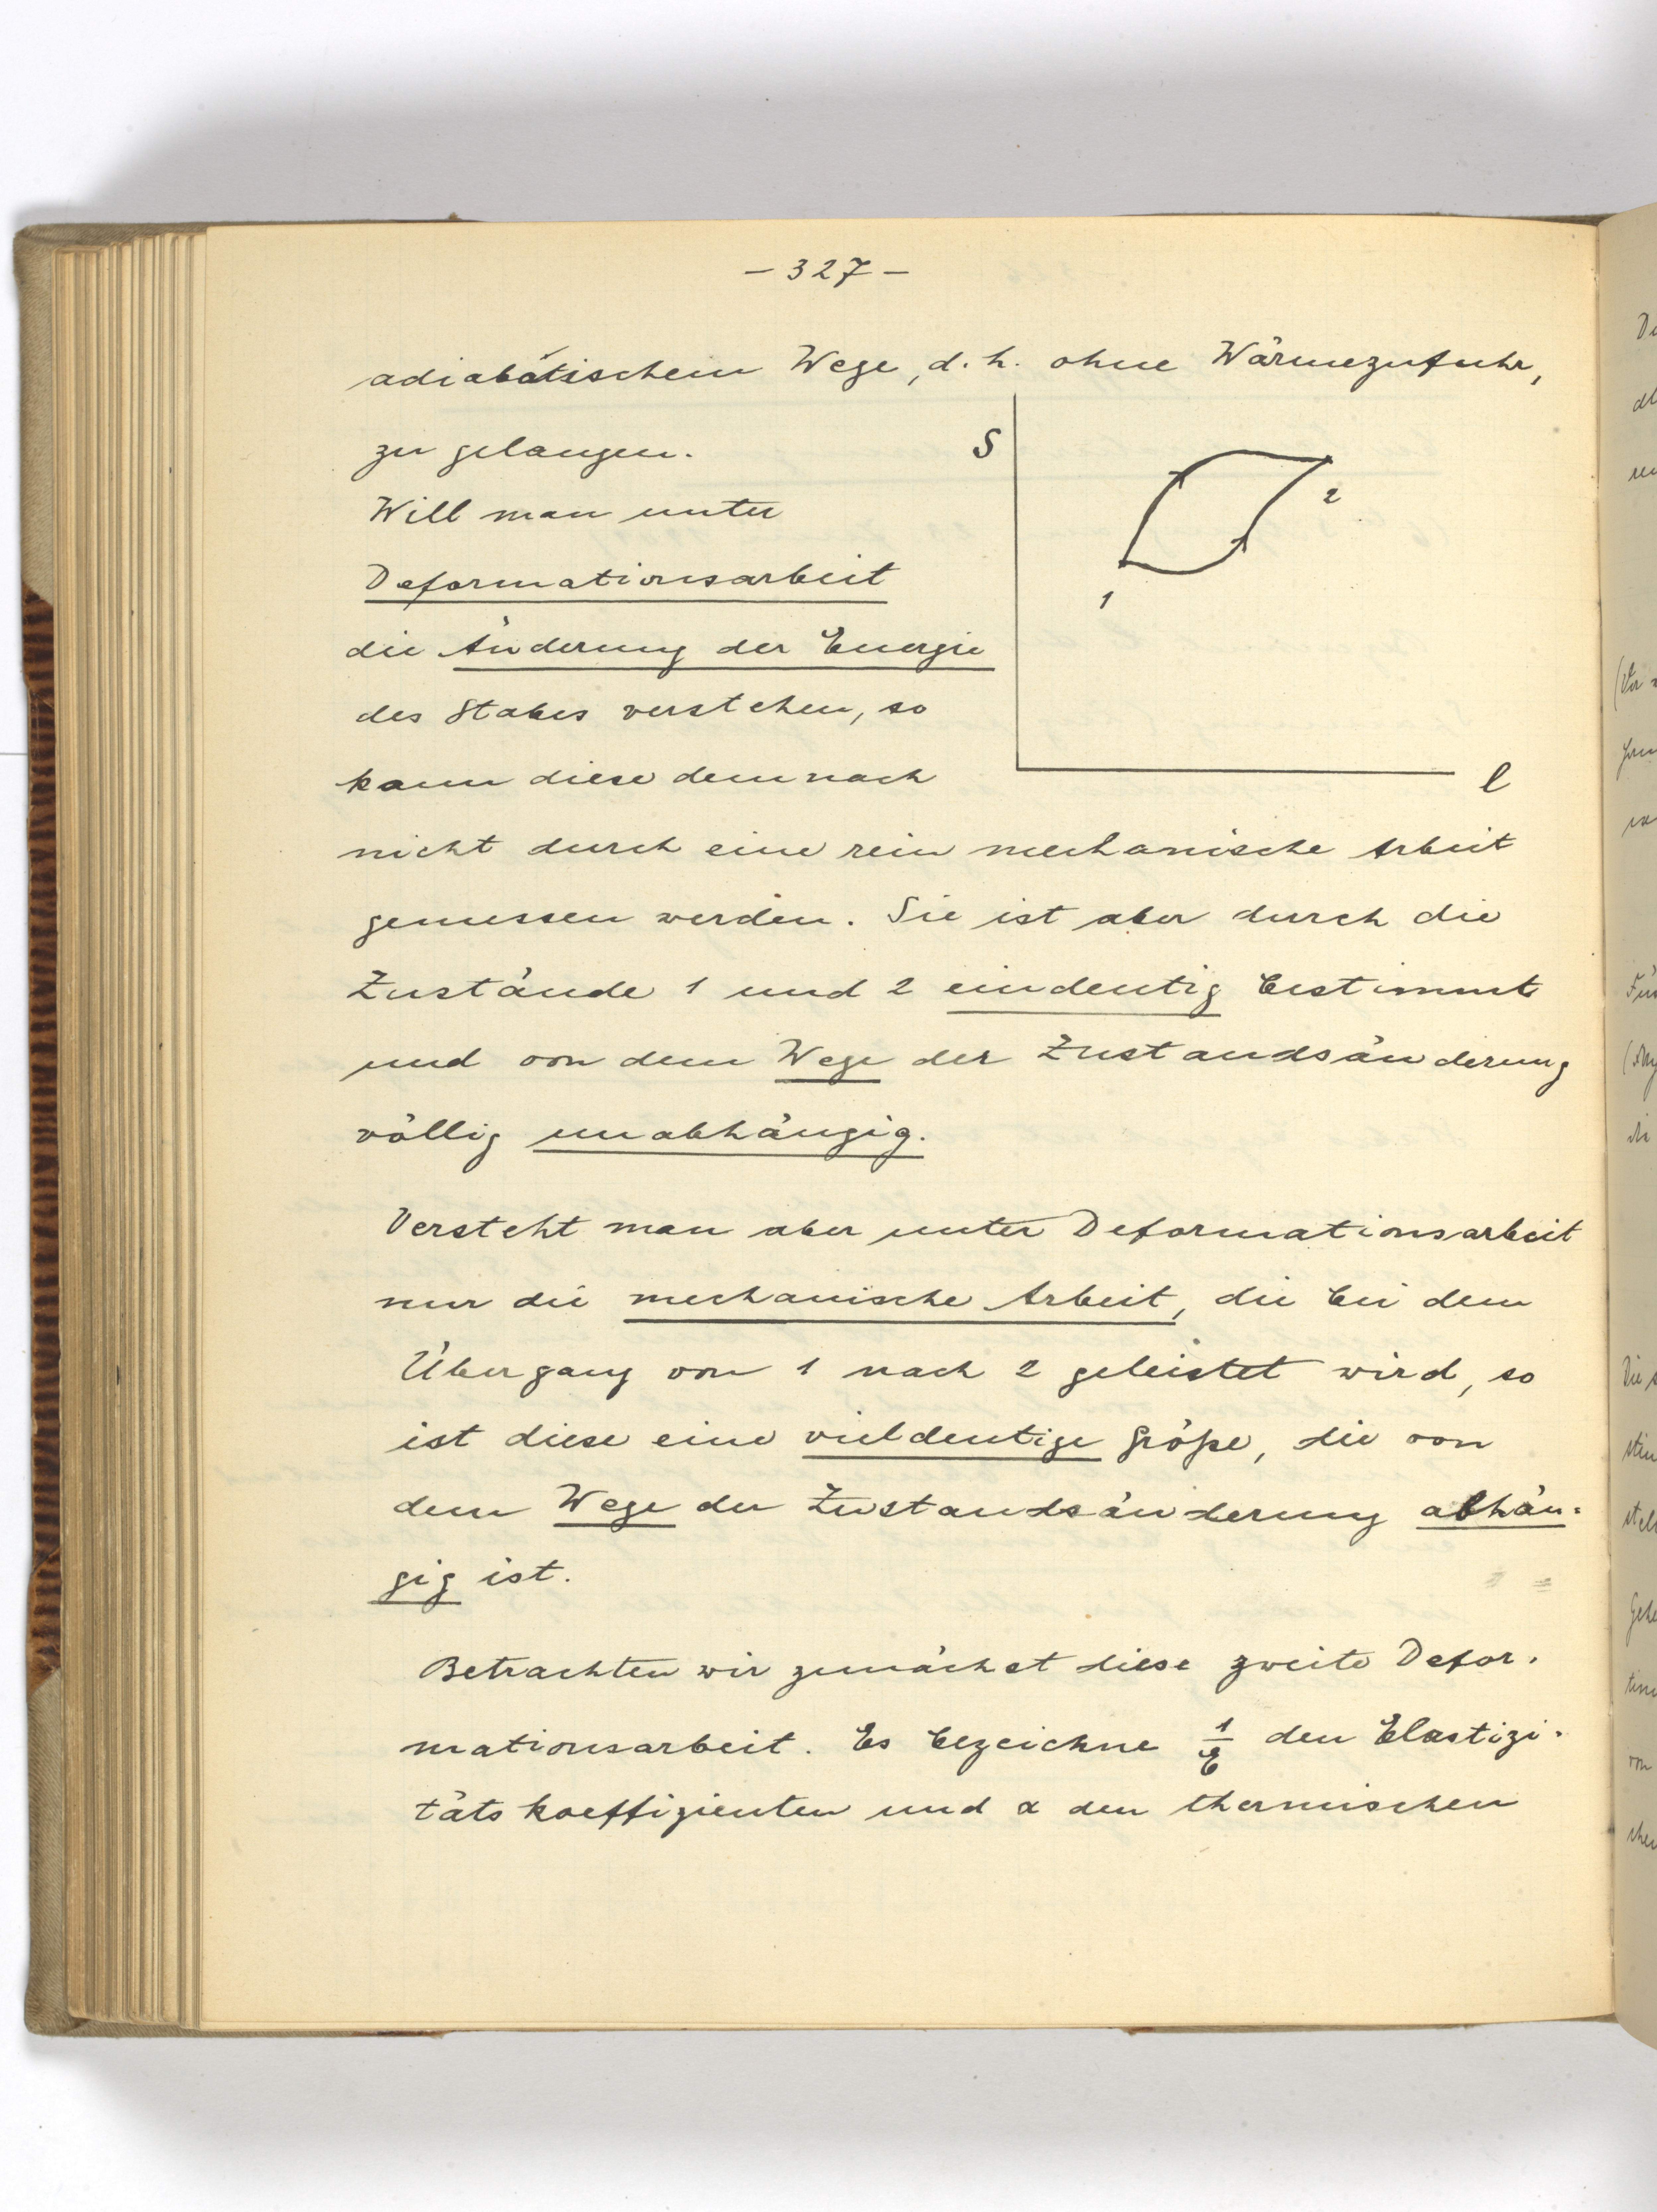 - 327 -
adiabatischem Wege, d. h. ohne Wärmezufuhr,
zu gelangen.
S
Will man unter
2
Deformationsarbeit
1
die Änderung der Energie
des Stabes verstehen, so
kann diese demnach
l
nicht durch eine rein mechanische Arbeit
gemessen werden. Sie ist aber durch die
Zustände 1 und 2 eindeutig bestimmt
und von dem Wege der Zustandsänderung
völlig unabhängig.
Versteht man aber unter Deformationsarbeit
nur die mechanische Arbeit, die bei dem
Übergang von 1 nach 2 geleistet wird, so
ist diese eine vieldeutige Größe, die von
dem Wege der Zustandsänderung abhän=
gig ist.
Betrachten wir zunächst diese zweite Defor-
mationsarbeit. Es bezeichne 1/E den Elastizi-
tätskoeffizienten und α den thermischen